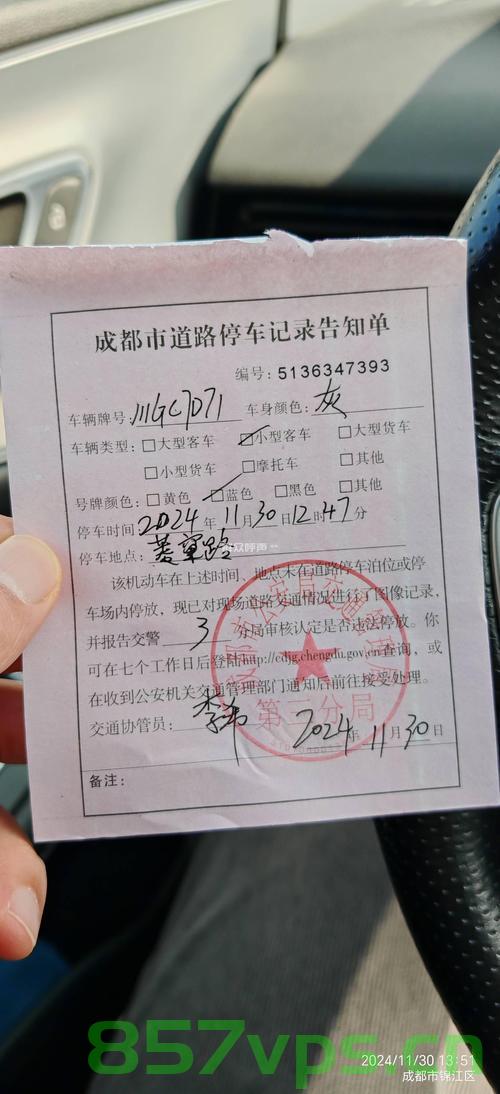 成都市道路停车记录告知单
编号：5136347393
车辆牌号：川GC7D71 车身颜色：灰
车辆类型：□大型客车 □小型客车 □大型货车
□小型货车 □摩托车 □其他
号牌颜色：□黄色 □蓝色 □黑色 □其他
停车时间 2024 年 11 月 30 日 12 时 47 分
停车地点：菱窠路
该机动车在上述时间、地点未在道路停车泊位或停
车场内停放，现已对现场道路交通情况进行了图像记录，
并报告交警 3 分局审核认定是否违法停放。你
可在七个工作日后登陆http://cdjg.chengdu.gov.cn查询，或
在收到公安机关交通管理部门通知后前往接受处理。
第三分局
交通协管员： 2024 年 11 月 30 日
备注：
857vps.cn
2024/11/30 13:51
成都市锦江区